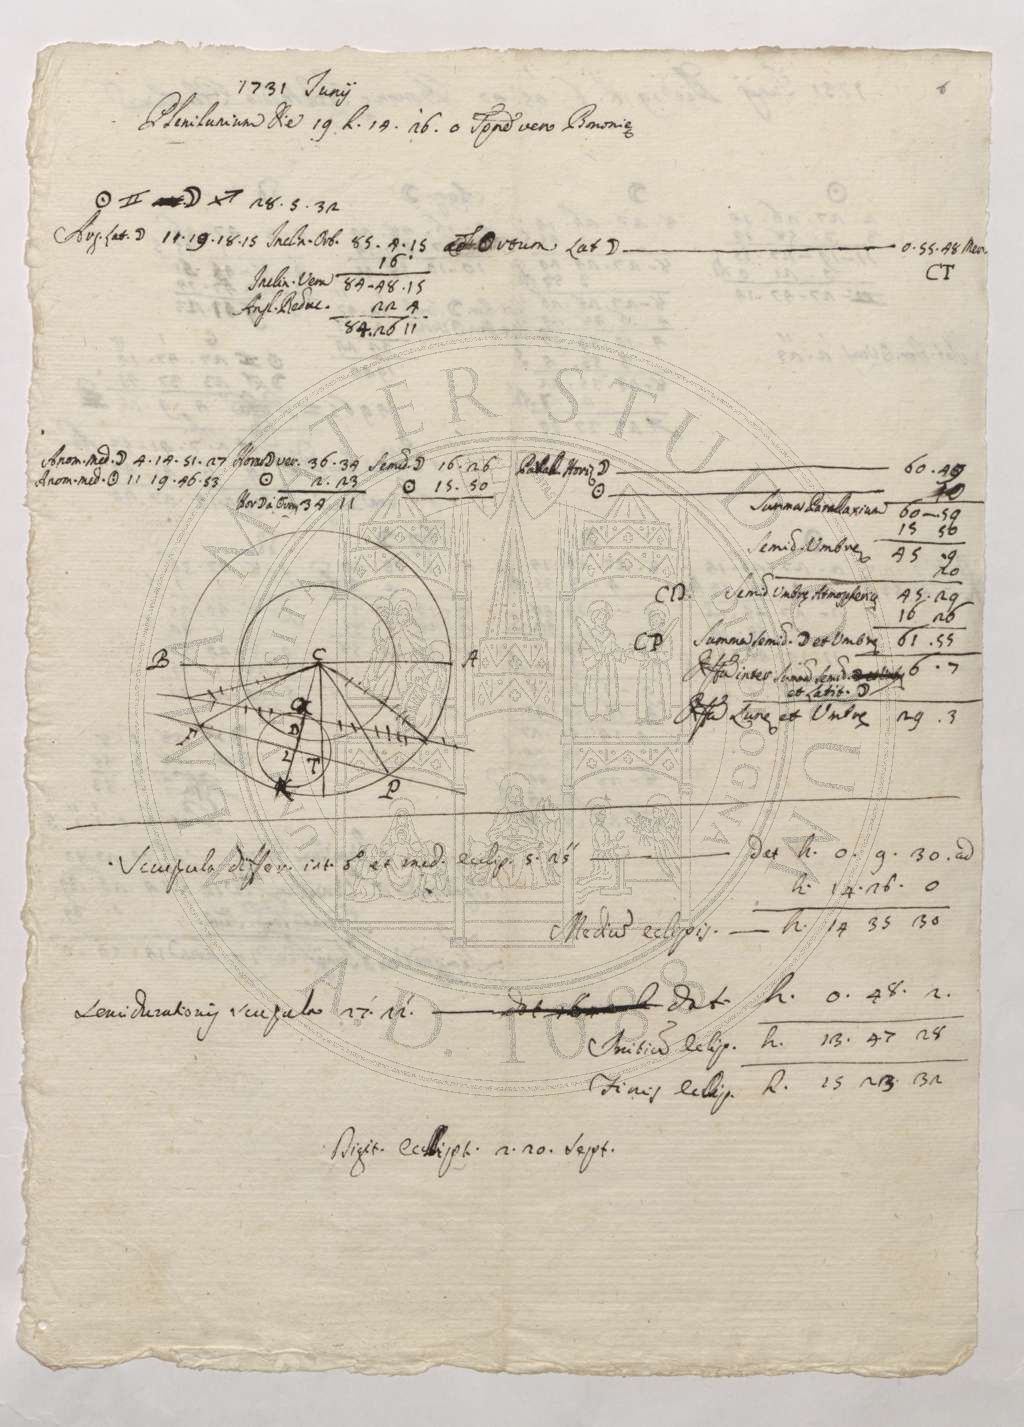 1731 Junij
6
Plenilunium die 19 h. 14. 26. 0 Tpre vero Bononię
☉ ♊ ☽ ♐ 28. 5. 32
Arg. Lat. ☽ 11. 19. 18. 15 Inclin. Orb. 85. 4. 15 Ortum Lat ☽ 0. 55. 48 Mer.
16
CT
Inclin. Vera 84. 48. 15
Angl. Reduc. 22 4
84. 26 11
Anom. med. ☽ 4. 14. 51. 27 Hor. ☽ ver. 36. 34 Semid. ☽ 16. 26 Parall. Horiz ☽ 60. 49
Anom. med. ☉ 11 19. 46. 53 ☉ 2. 23 ☉ 15. 50 ☉ 10
Hor ☽ a ☉ 34 11
Summa Parallaxium 60. 59
15 50
Semid. Umbrę 45 . 9
20
CD. Semid Umbrę Atmosferię 45. 29
16 26
CP Summa Semid. ☽ et Umbrę 61. 55
Diffa inter Summā Semid. 6. 7
et Latit. ☽
Diffa Lunę et Umbrę 29. 3
B C A
D
F L T
P
Scrupula differ. int. ☍ et med. eclip. 5. 25 det h. 0. 9. 30. ad
h. 14. 26. 0
Medium eclypis. h. 14 35 30
Semidurationis scrupula 27. 22. dat. h. 0. 48. 2.
Initium eclip. h. 13. 47 28
Finis eclip. h. 15 23. 32
Digit. eclipt. 2. 20. Sept.
ALMA MATER STUDIORUM
A.D. 1088